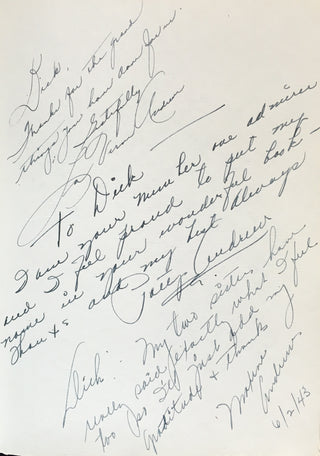 Dick,
Thanks for the grand
things you have done for us.
Gratefully
La Verne Andrews
To Dick
I am your number one admirer
and I feel proud to put my
name in your wonderful book -
Thanks and my best always
Patty Andrews
Dick: My two sisters have
really said exactly what I feel
too so I'll just add my
gratitude & thanks
Maxene
Andrews
6/2/43